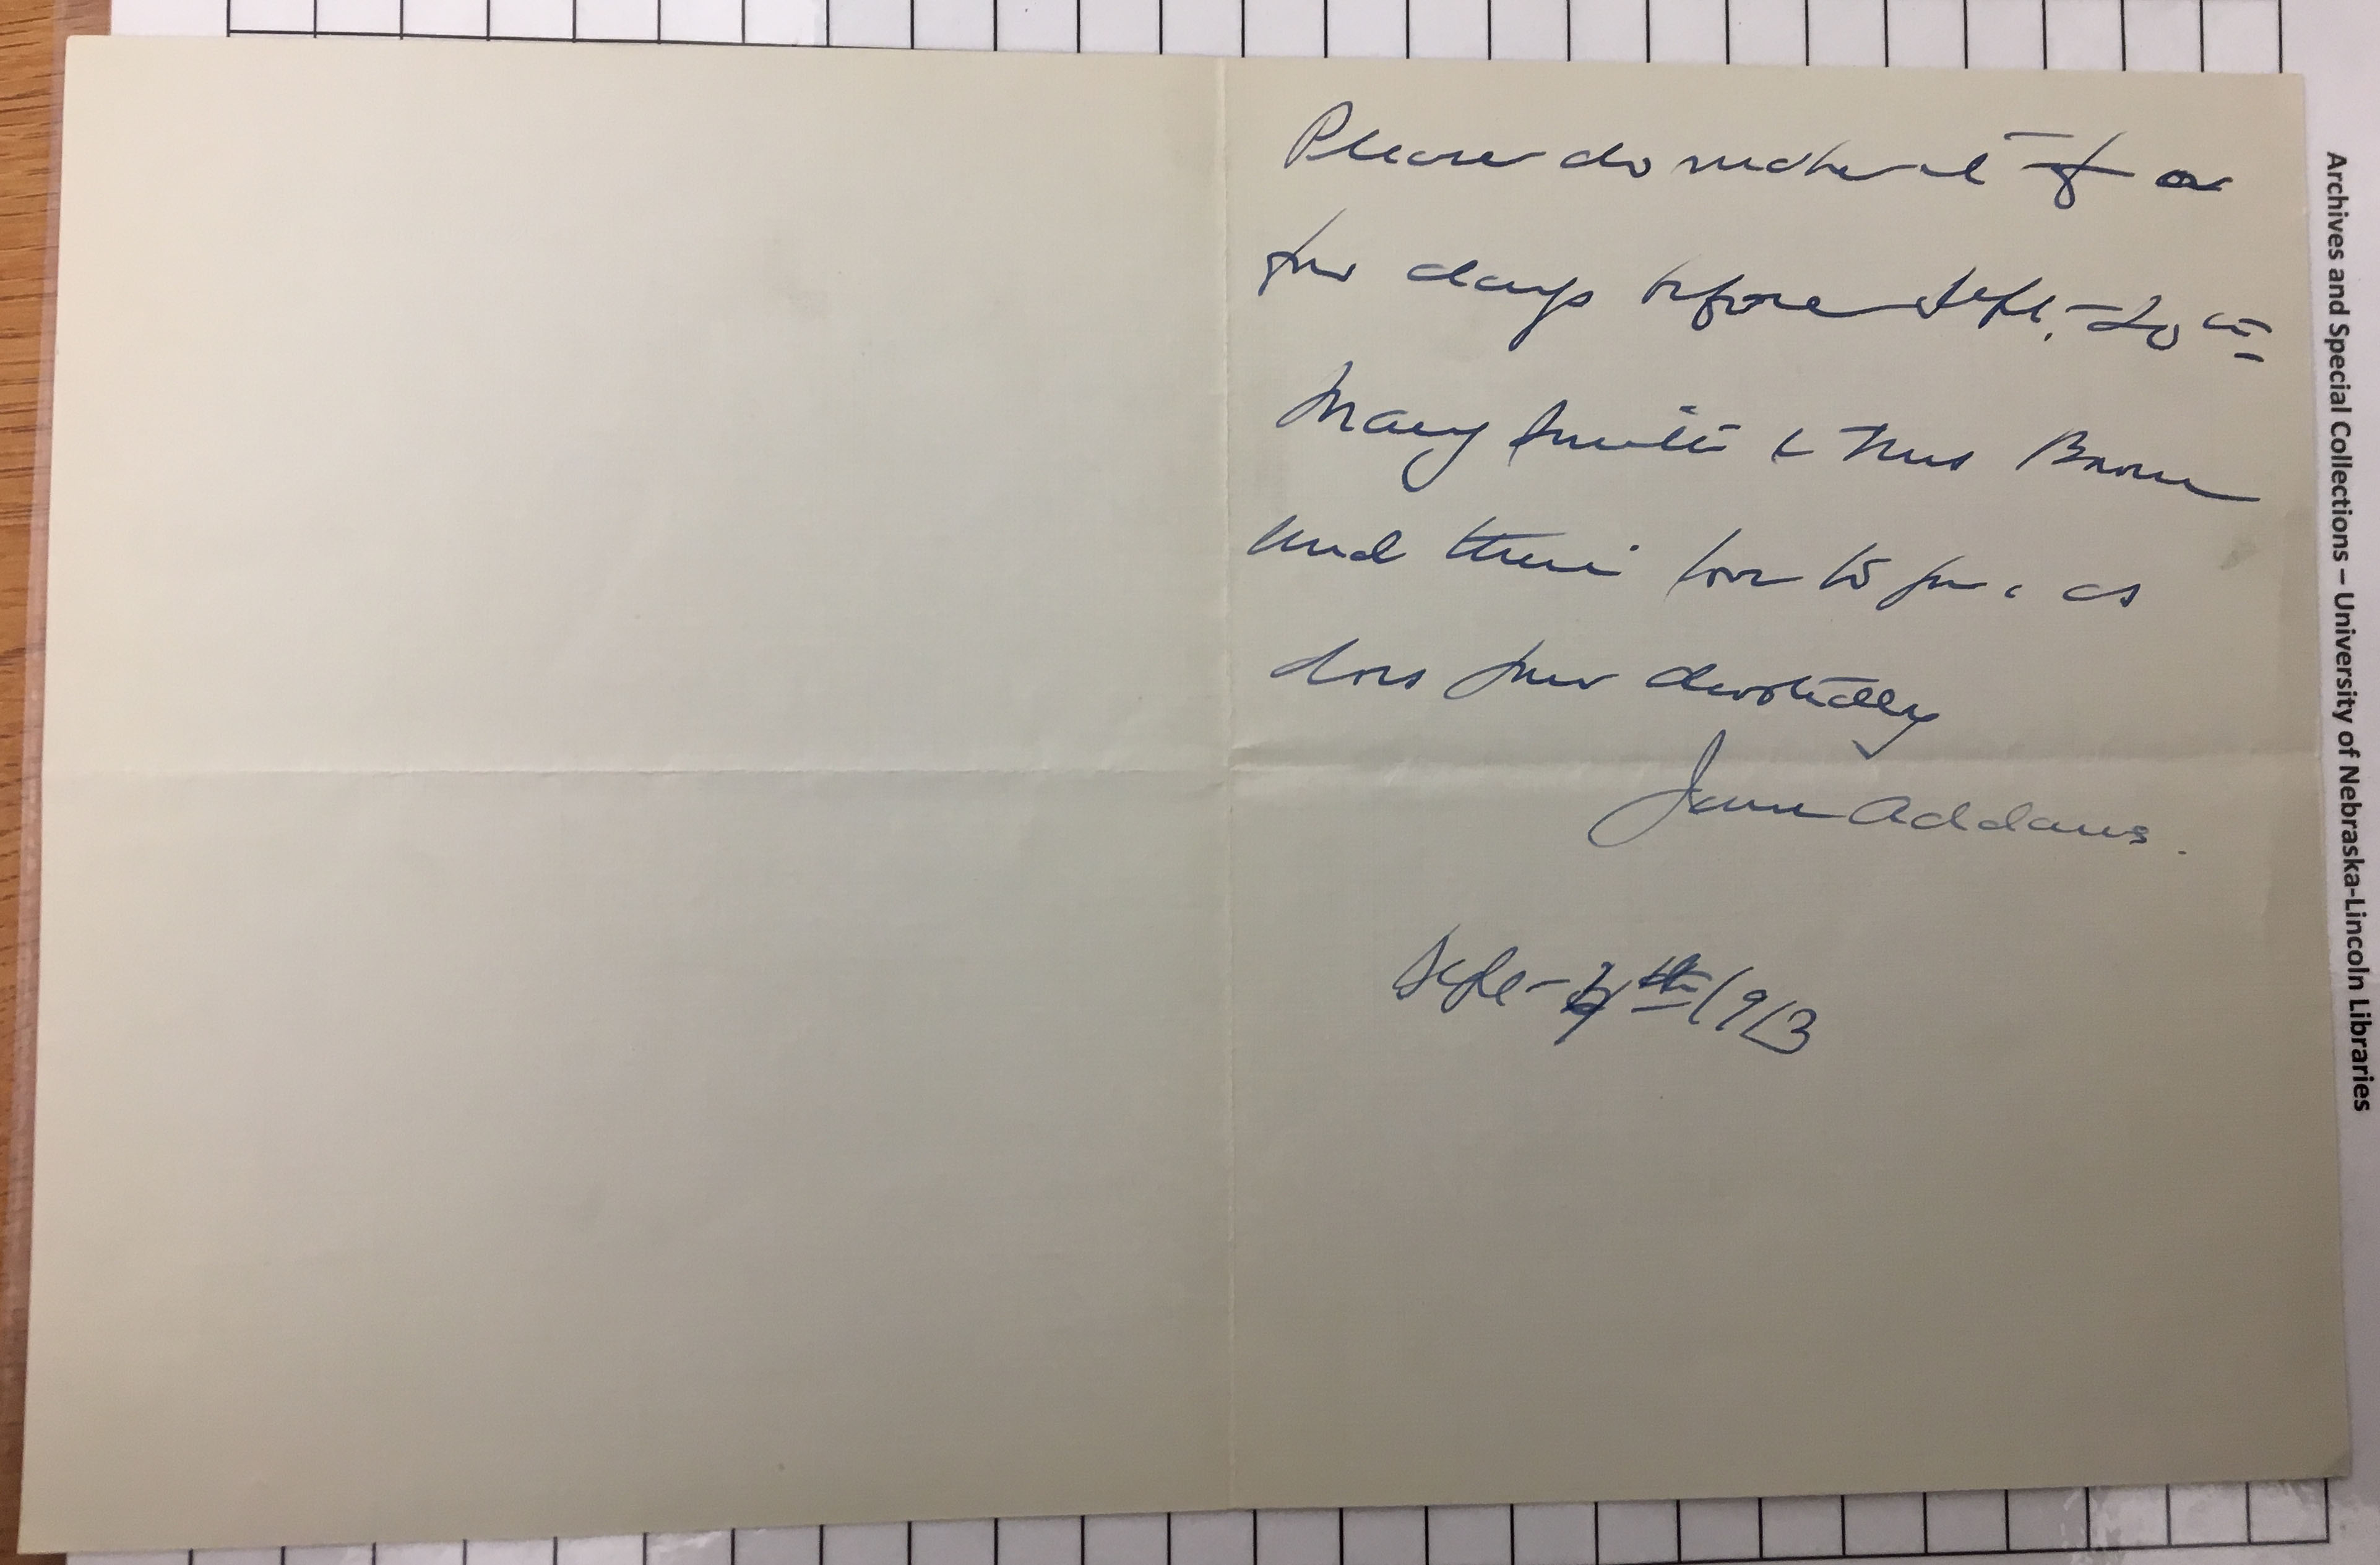 Please do make it if a
few days before Sept. 20th
Mary Smith & Miss Brown
send their love to you, as
does yours devotedly
Jane Addams.
Sept 4th 1913
Archives and Special Collections – University of Nebraska-Lincoln Libraries